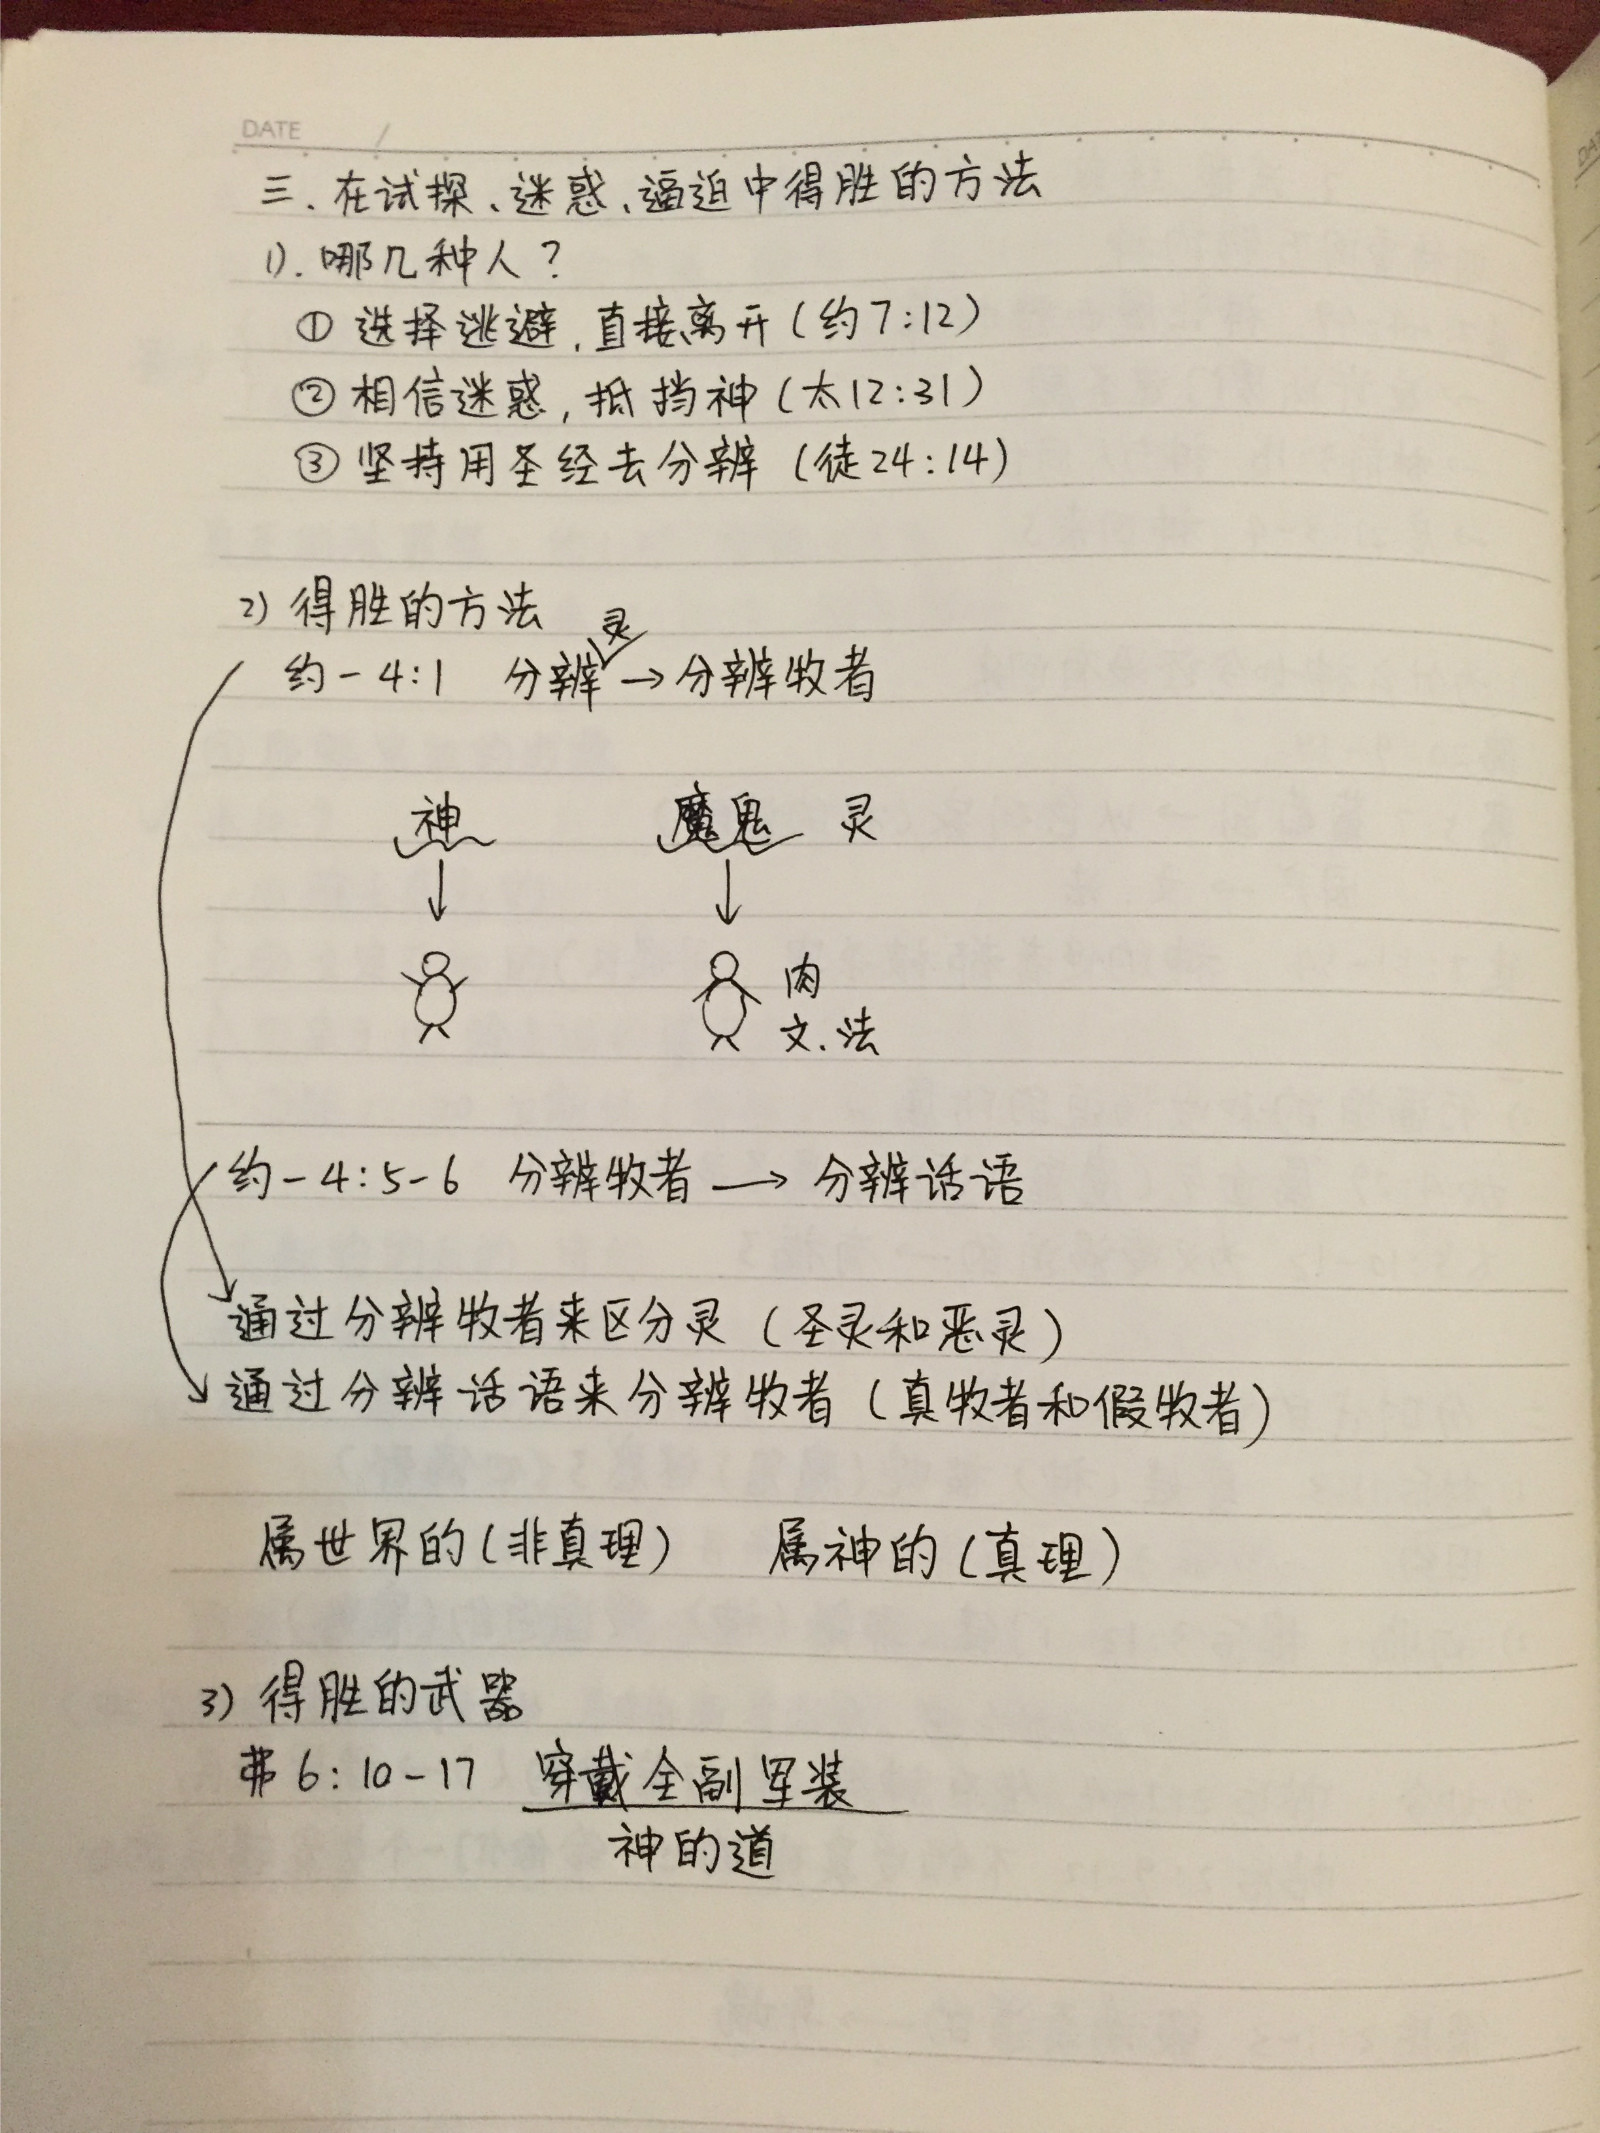 DATE /
三.在试探、迷惑、逼迫中得胜的方法
1).哪几种人?
① 选择逃避,直接离开(约7:12)
② 相信迷惑,抵挡神(太12:31)
③ 坚持用圣经去分辨(徒24:14)
2) 得胜的方法
灵
约一4:1 分辨→分辨牧者
神 魔鬼 灵
肉
文.法
约一4:5-6 分辨牧者→分辨话语
通过分辨牧者来区分灵(圣灵和恶灵)
通过分辨话语来分辨牧者(真牧者和假牧者)
属世界的(非真理) 属神的(真理)
3) 得胜的武器
弗6:10-17 穿戴全副军装
神的道